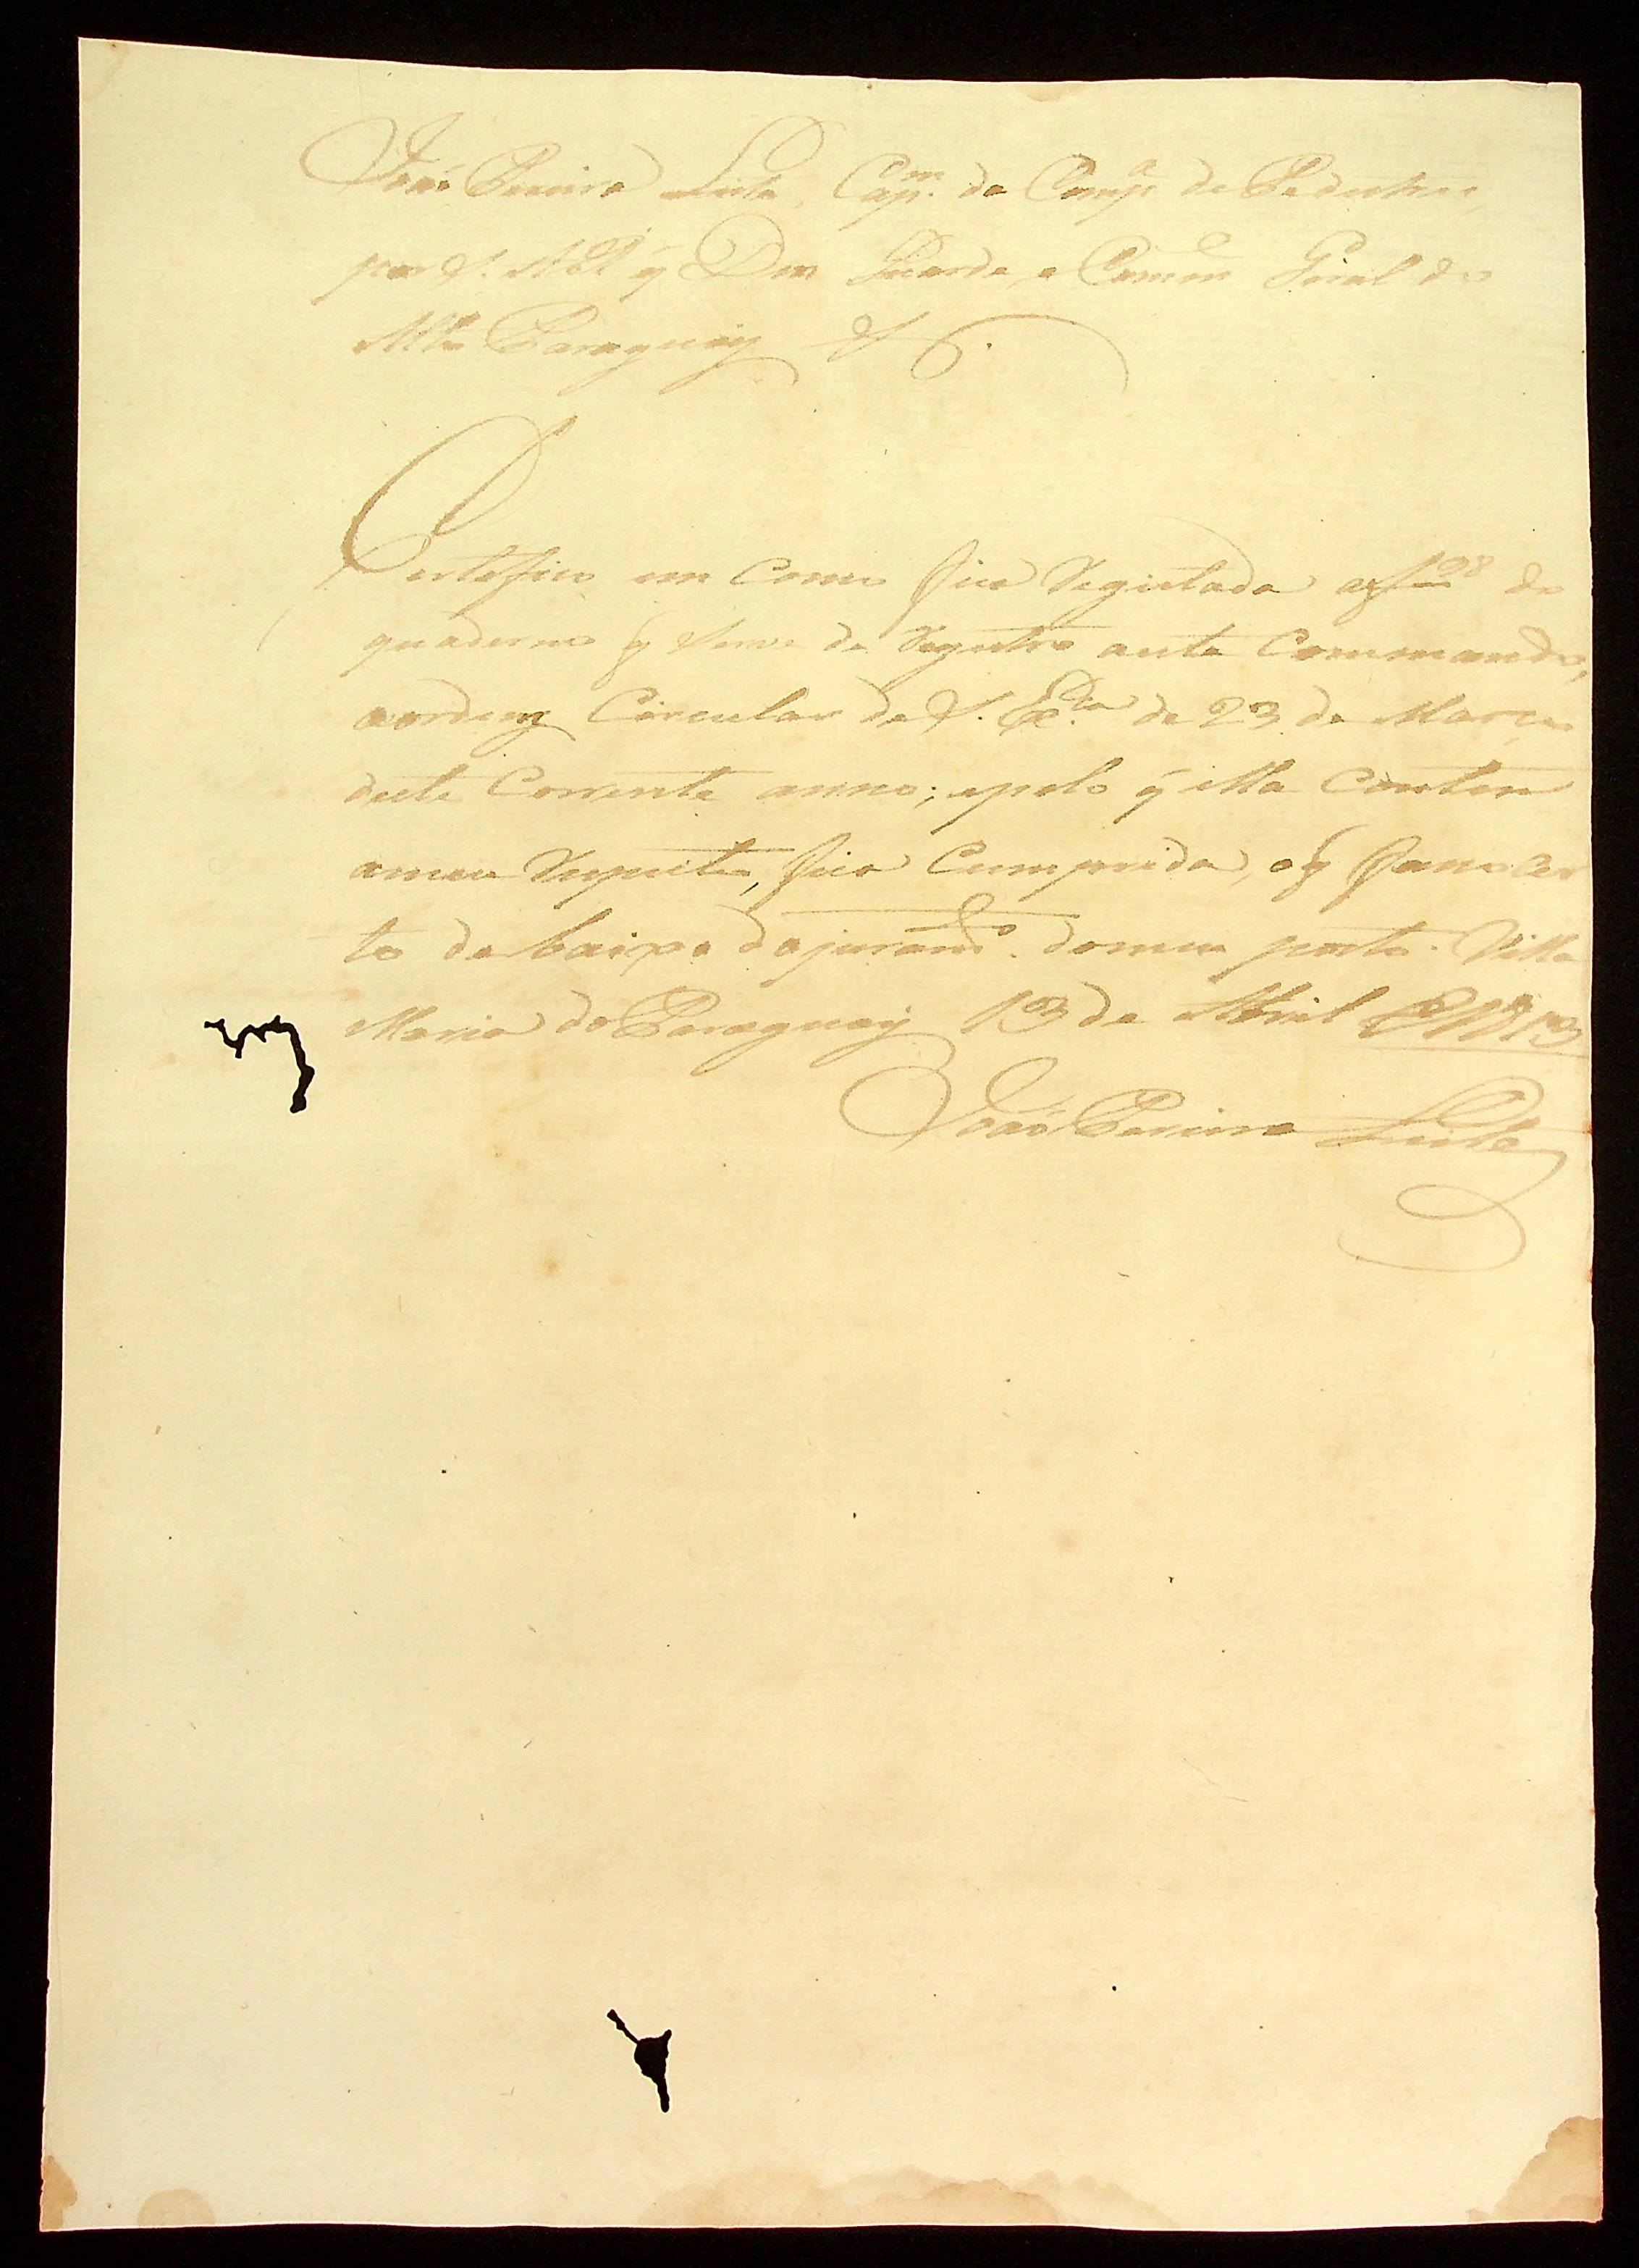 João Pereira Leite, Cap.m da Comp.a de Pedestres,
por S. A. R. q̃ Deos Guarde, e Comm.e Geral do
Alto Paraguay &
Certefico em Como fica Registada af 28 do
quaderno q̃ Serve de Registro neste Commando,
aordem Circular de S. Ex.cia de 23 de Março
deste Corrente anno; epelo q̃ ella Contem
ameu Respeito, fica Cumprida, oq̃ faço Cer
to debaixo dojuram.to domeu posto. Villa
Maria do Paraguay 13 de Abril 1813
João Pereira Leite